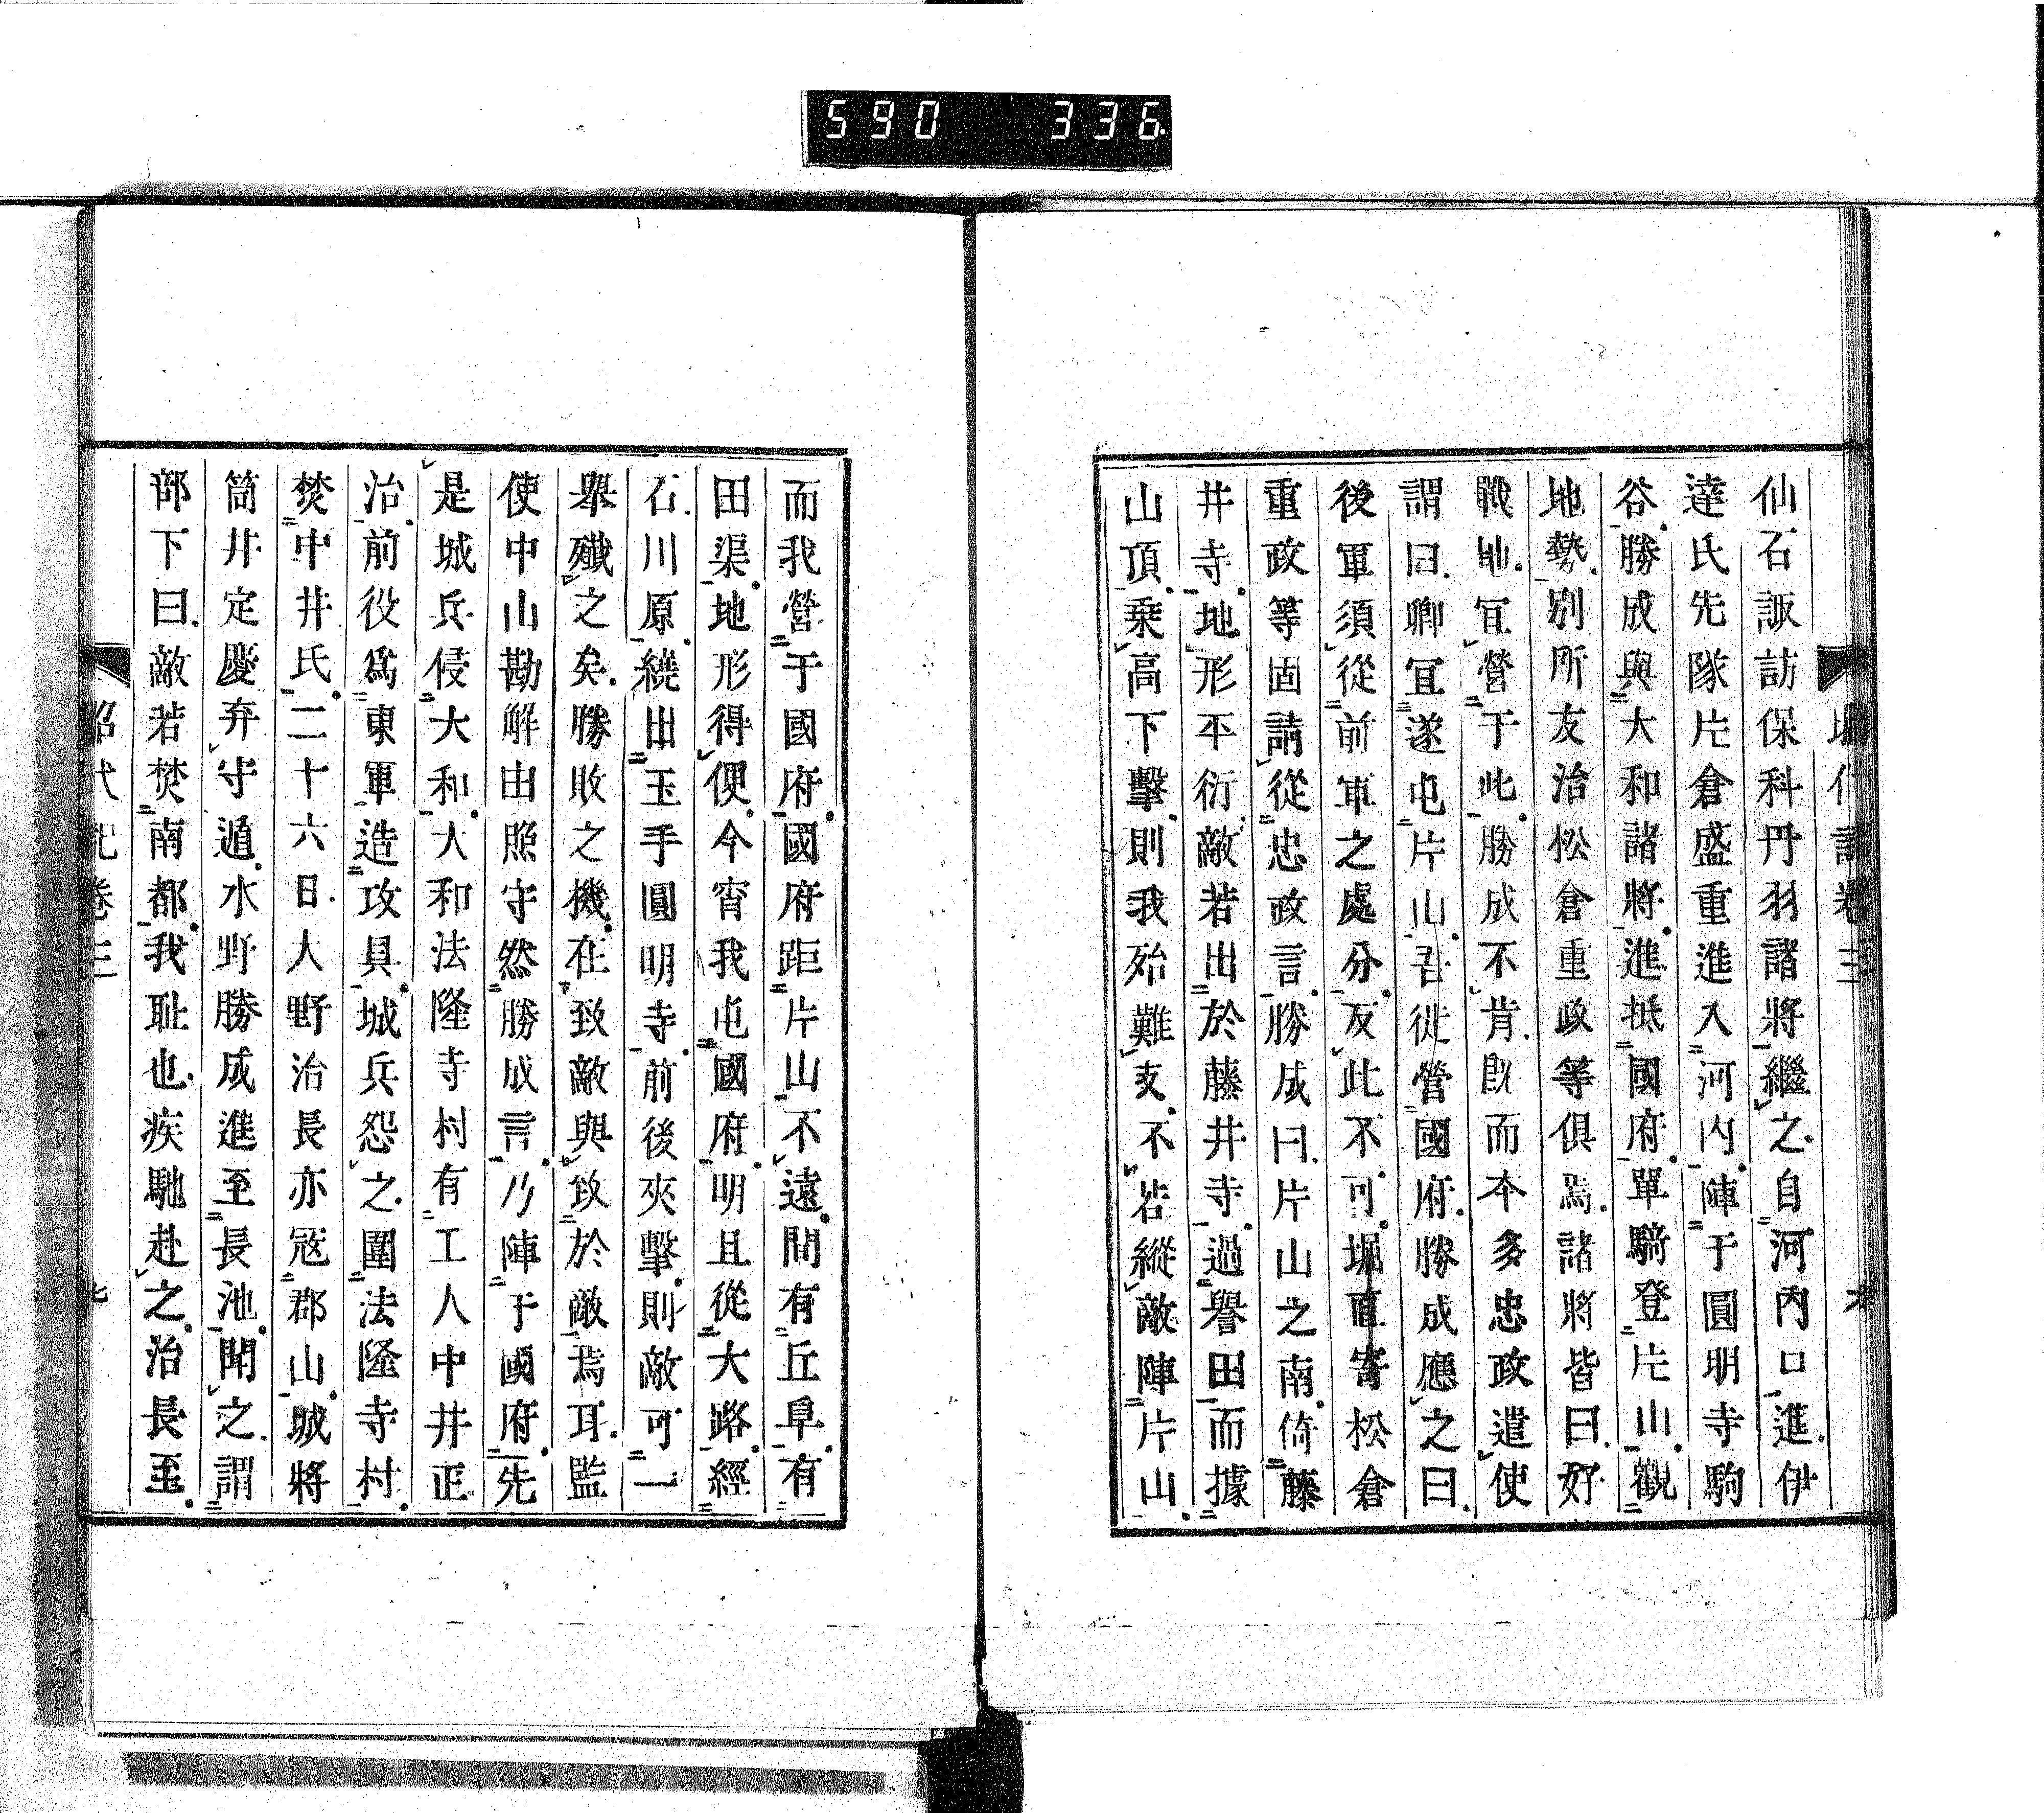 590 336
仙石諏訪保科丹羽諸將繼之自河內口進伊
達氏先隊片倉盛重進入河內陣于圓明寺駒
谷勝成與大和諸將進抵國府單騎登片山觀
地勢別所友治松倉重政等俱焉諸將皆曰好
戰地宜營于此勝成不肯既而本多忠政遣使
謂曰卿宜遂屯片山吾徙營國府勝成應之曰
後軍須從前軍之處分反此不可堀直寄松倉
重政等固請從忠政言勝成曰片山之南倚藤
井寺地形平衍敵若出於藤井寺過譽田而據
山頂乗高下擊則我殆難支不若縱敵陣片山
而我營于國府國府距片山不遠間有丘阜有
田渠地形得便今宵我屯國府明旦從大路經
石川原繞出玉手圓明寺前後夾擊則敵可一
舉殲之矣勝敗之機在致敵與致於敵焉耳監
使中山勘解由照守然勝成言乃陣于國府先
是城兵侵大和大和法隆寺村有工人中井正
治前役爲東軍造攻具城兵怨之圍法隆寺村
焚中井氏二十六日大野治長亦寇郡山城將
筒井定慶弃守遁水野勝成進至長池聞之謂
部下曰敵若焚南都我耻也疾馳赴之治長至
昭代記卷三